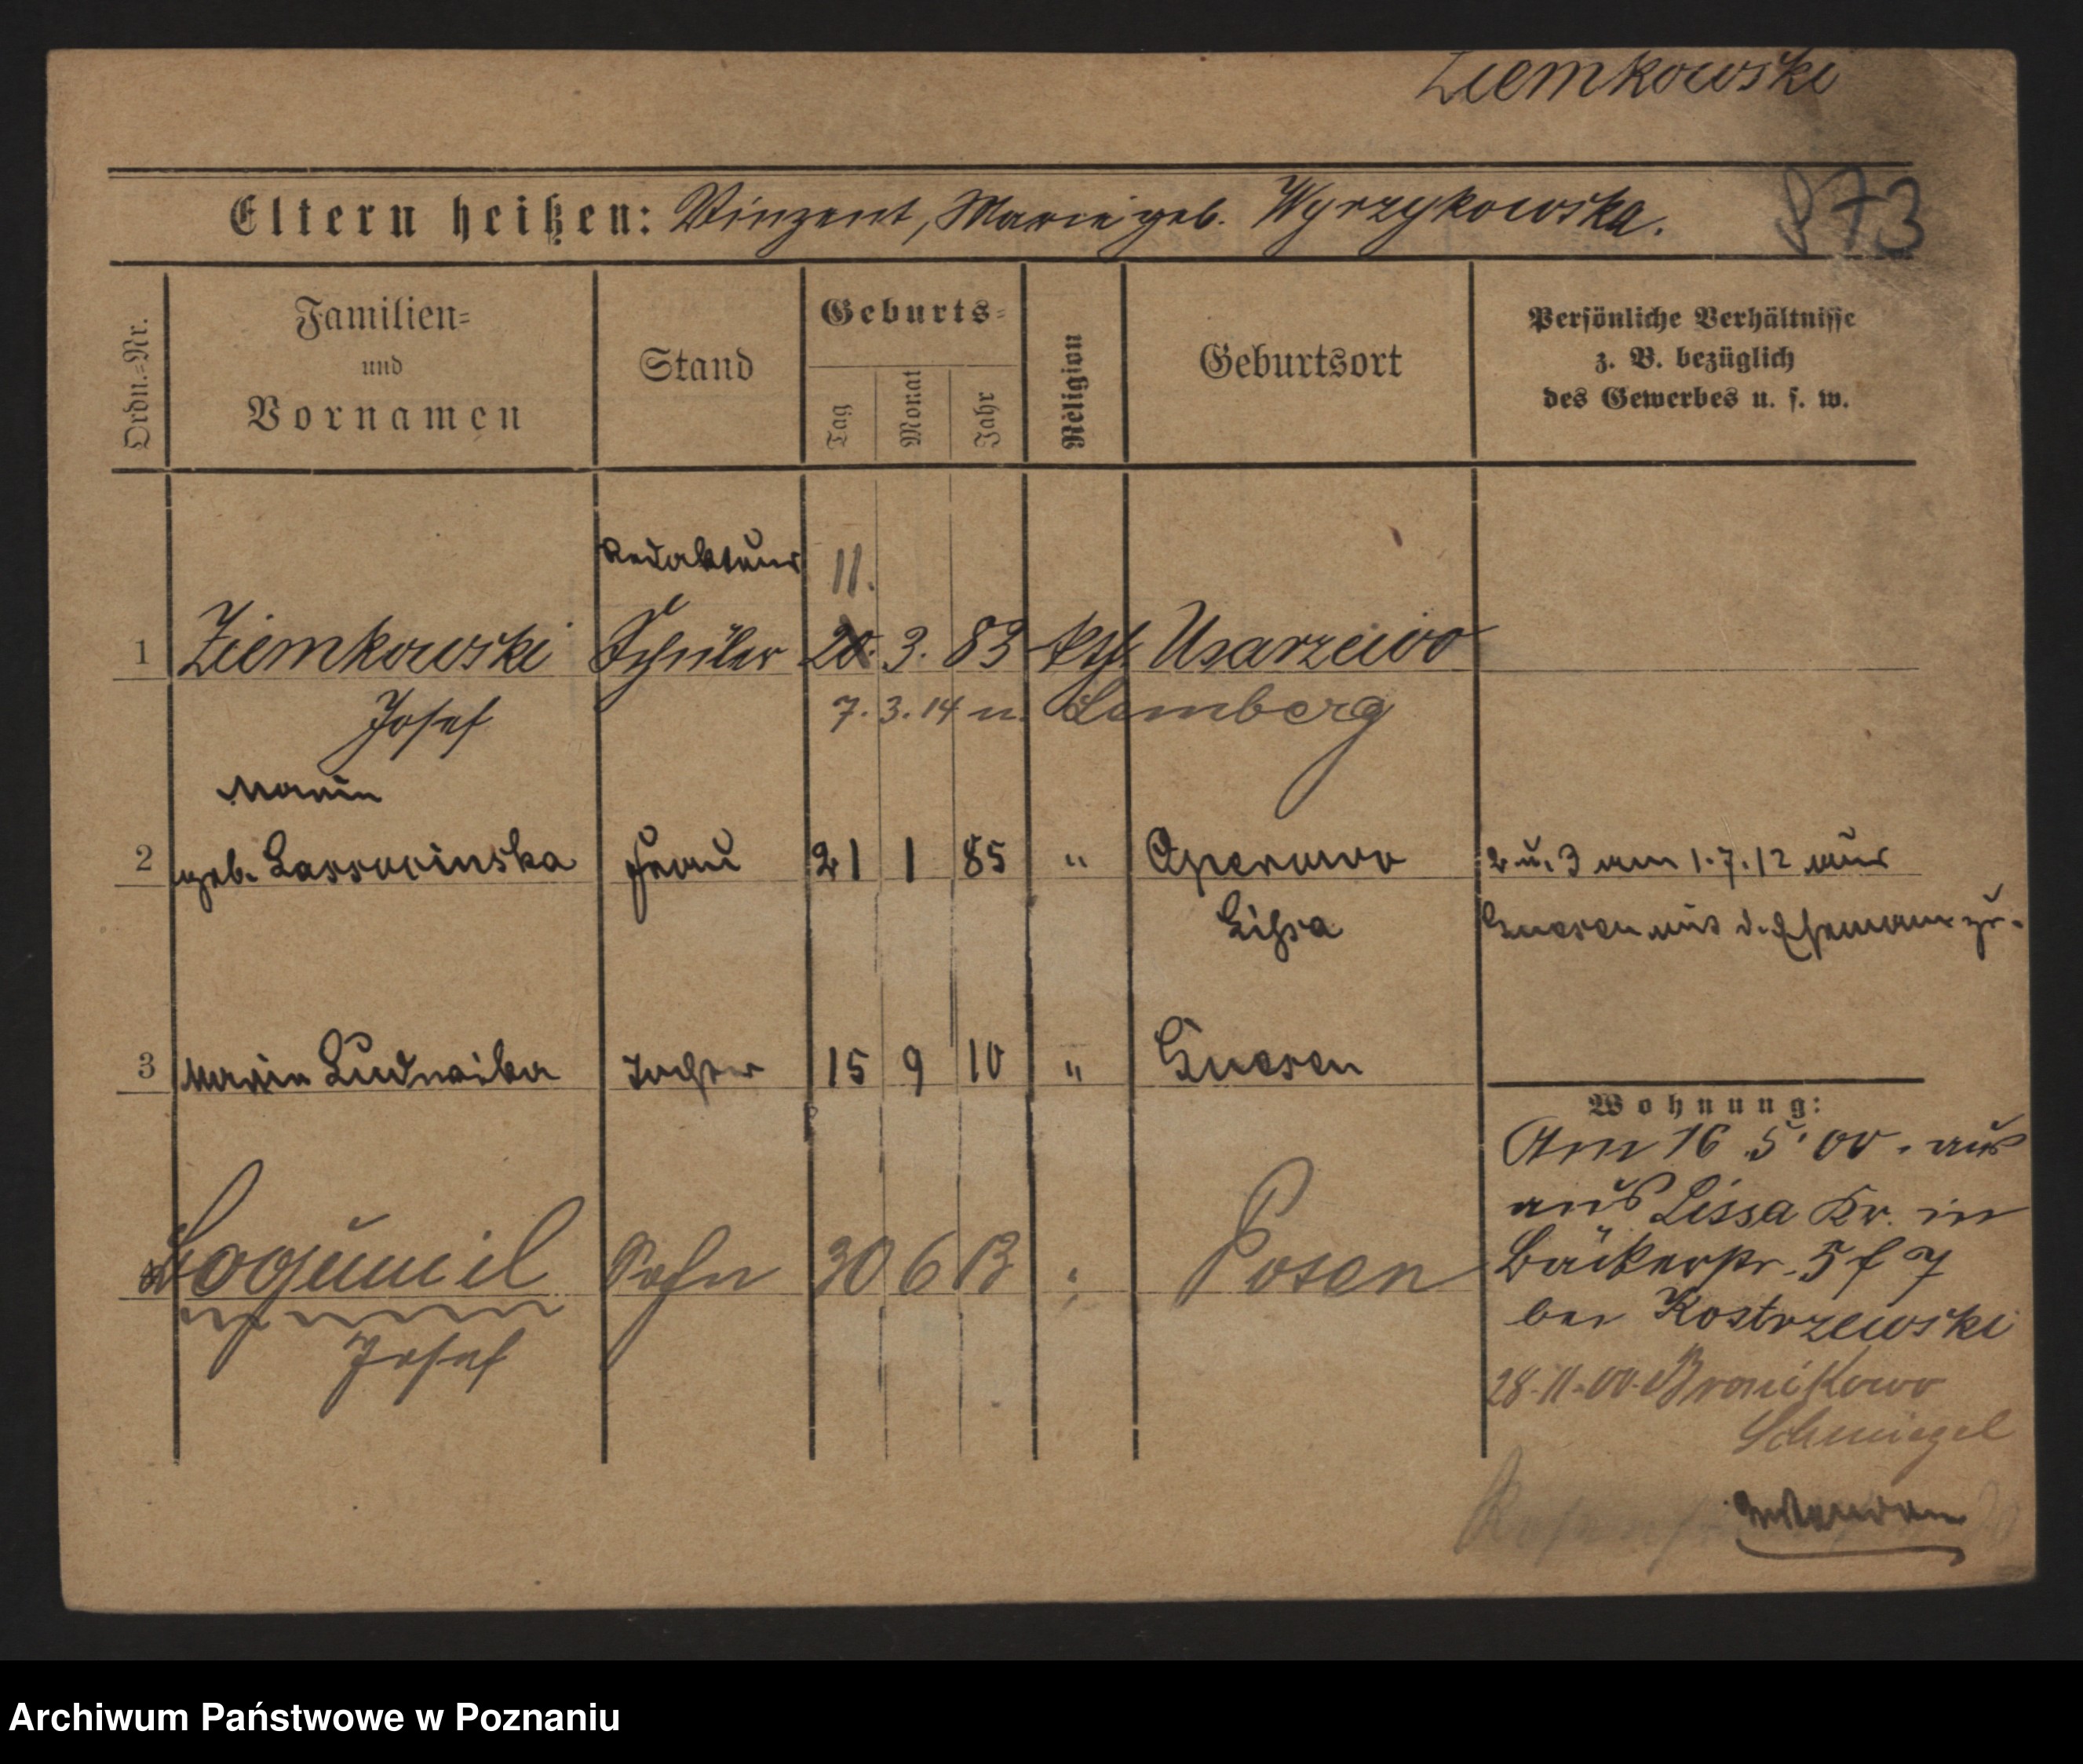 Ziemkowski
873
Eltern heißen: Vinzent, Marie geb. Wyrzykowska.
Ordn.-Nr.
Familien-
und
Vornamen
Stand
Geburts-
Tag
Monat
Jahr
Religion
Geburtsort
Persönliche Verhältnisse
z. B. bezüglich
des Gewerbes u. s. w.
Redakteur 11.
1 Ziemkowski Schüler 20. 3. 83 kth. Usarzewo
Josef 7. 3. 14 n. Lemberg
Maria
2 geb. Frau 21 1 85 " 2 u. 3 am 1.7.12 aus
Lissa Gnesen mit d. Ehemann zu.
3 Maria Ludwika Tochter 15 9 10 " Gnesen
Wohnung:
Am 16 5. 00. aus
aus Lissa Kr. in
Bäckerstr. 5 f 7
Bogumil Sohn 30 6 13 Posen
bei Kostrzewski
Josef
28.11.00. Bronikowo
Schmiegel